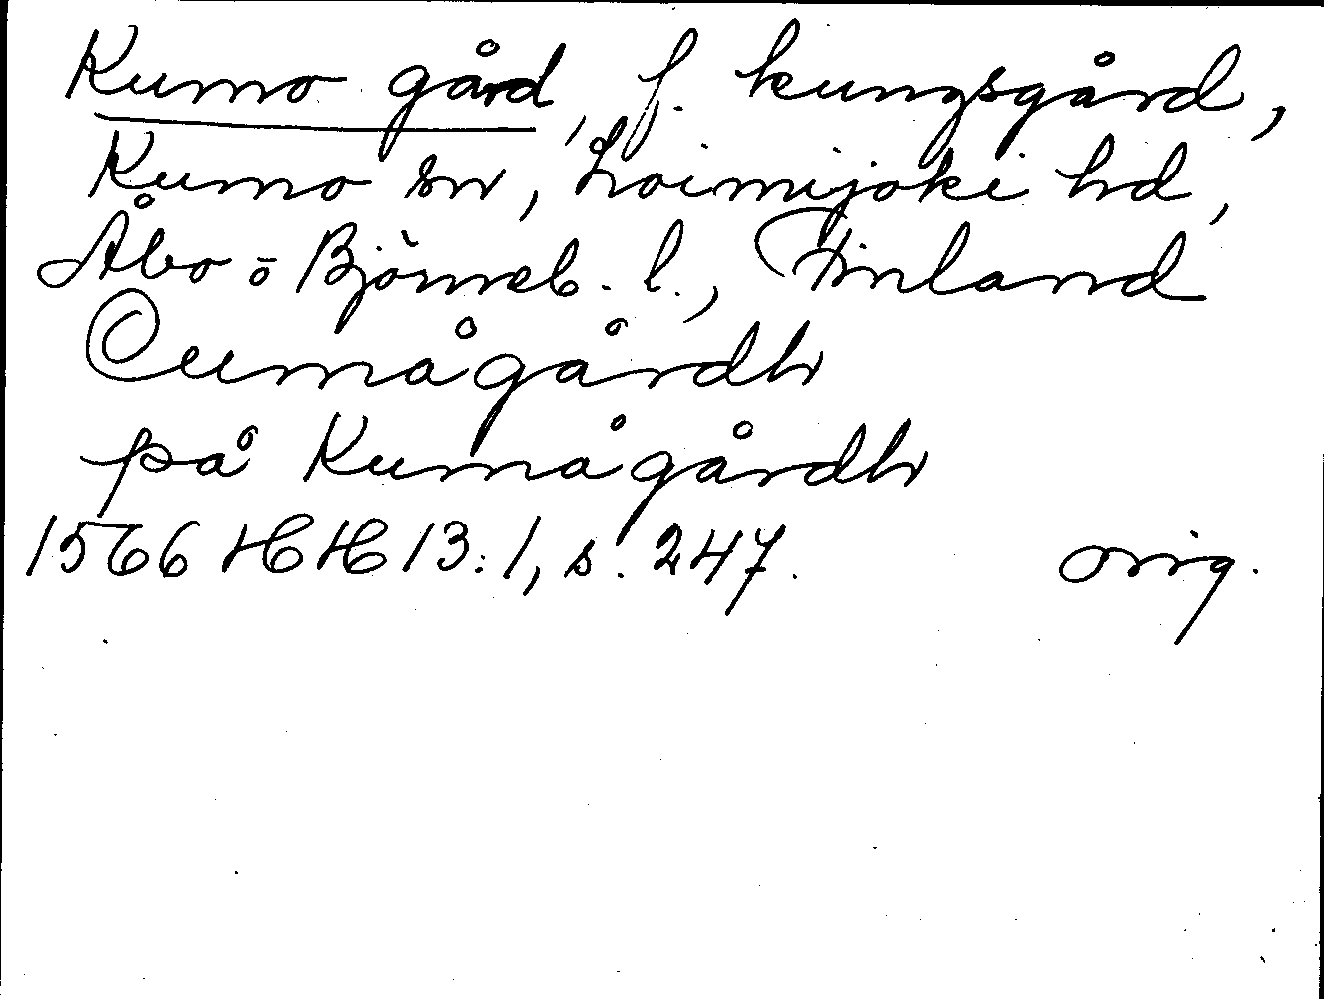 Kumo gård, f. kungsgård,
Kumo sn, Loimijoki hd,
Åbo o Björneb. l., Finland
Cumågårdh
på Kumågårdh
1566 HH 13:1, s. 247. orig.